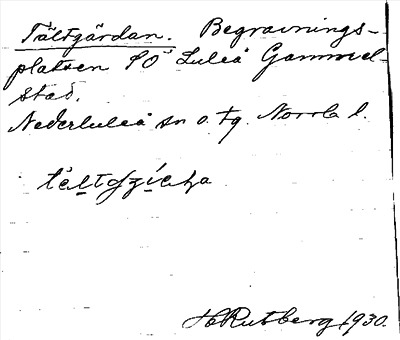 Tältgärdan. Begravnings-
platsen SO Luleå Gammel-
stad.
Nederluleå sn o. tg. Norrb l.
H Rutberg 1930.